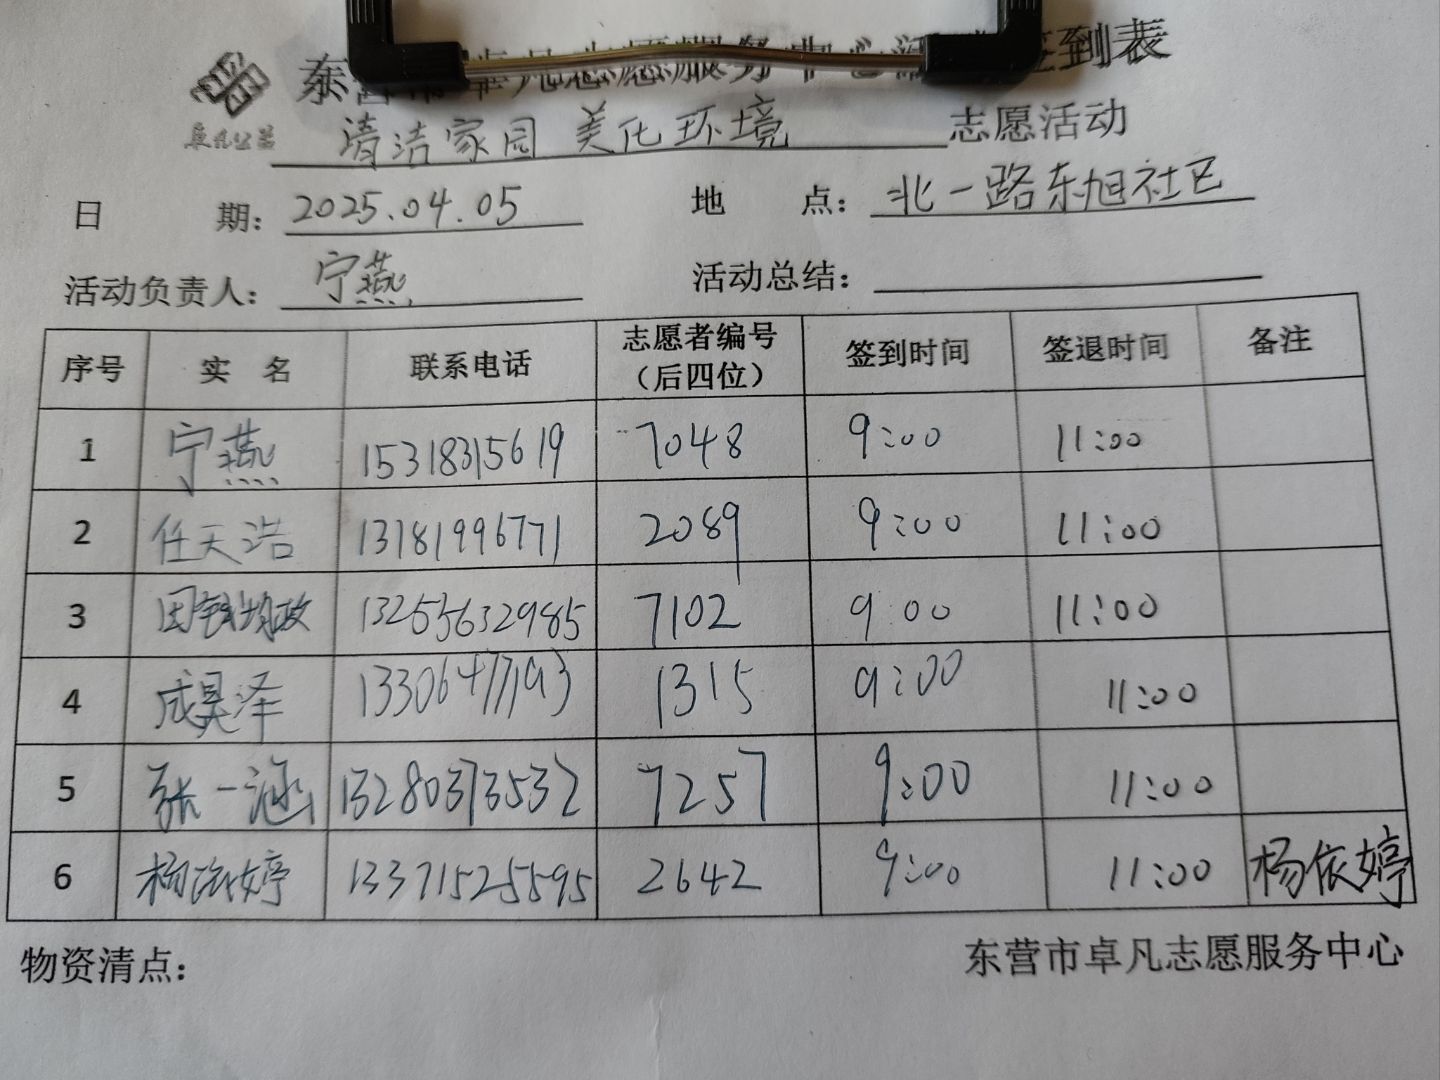 东营市卓凡志愿服务中心活动签到表
卓凡公益
清洁家园 美化环境 志愿活动
日 期: 2025.04.05 地 点: 北一路东旭社区
活动负责人: 宁燕 活动总结:
序号 实 名 联系电话 志愿者编号（后四位） 签到时间 签退时间 备注
1 宁燕 15318315619 7048 9:00 11:00
2 任天浩 13181996771 2089 9:00 11:00
3 13255632985 7102 9:00 11:00
4 成昊泽 13306477193 1315 9:00 11:00
5 张一涵 13280373532 7257 9:00 11:00
6 杨依婷 13371525595 2642 9:00 11:00 杨依婷
物资清点: 东营市卓凡志愿服务中心